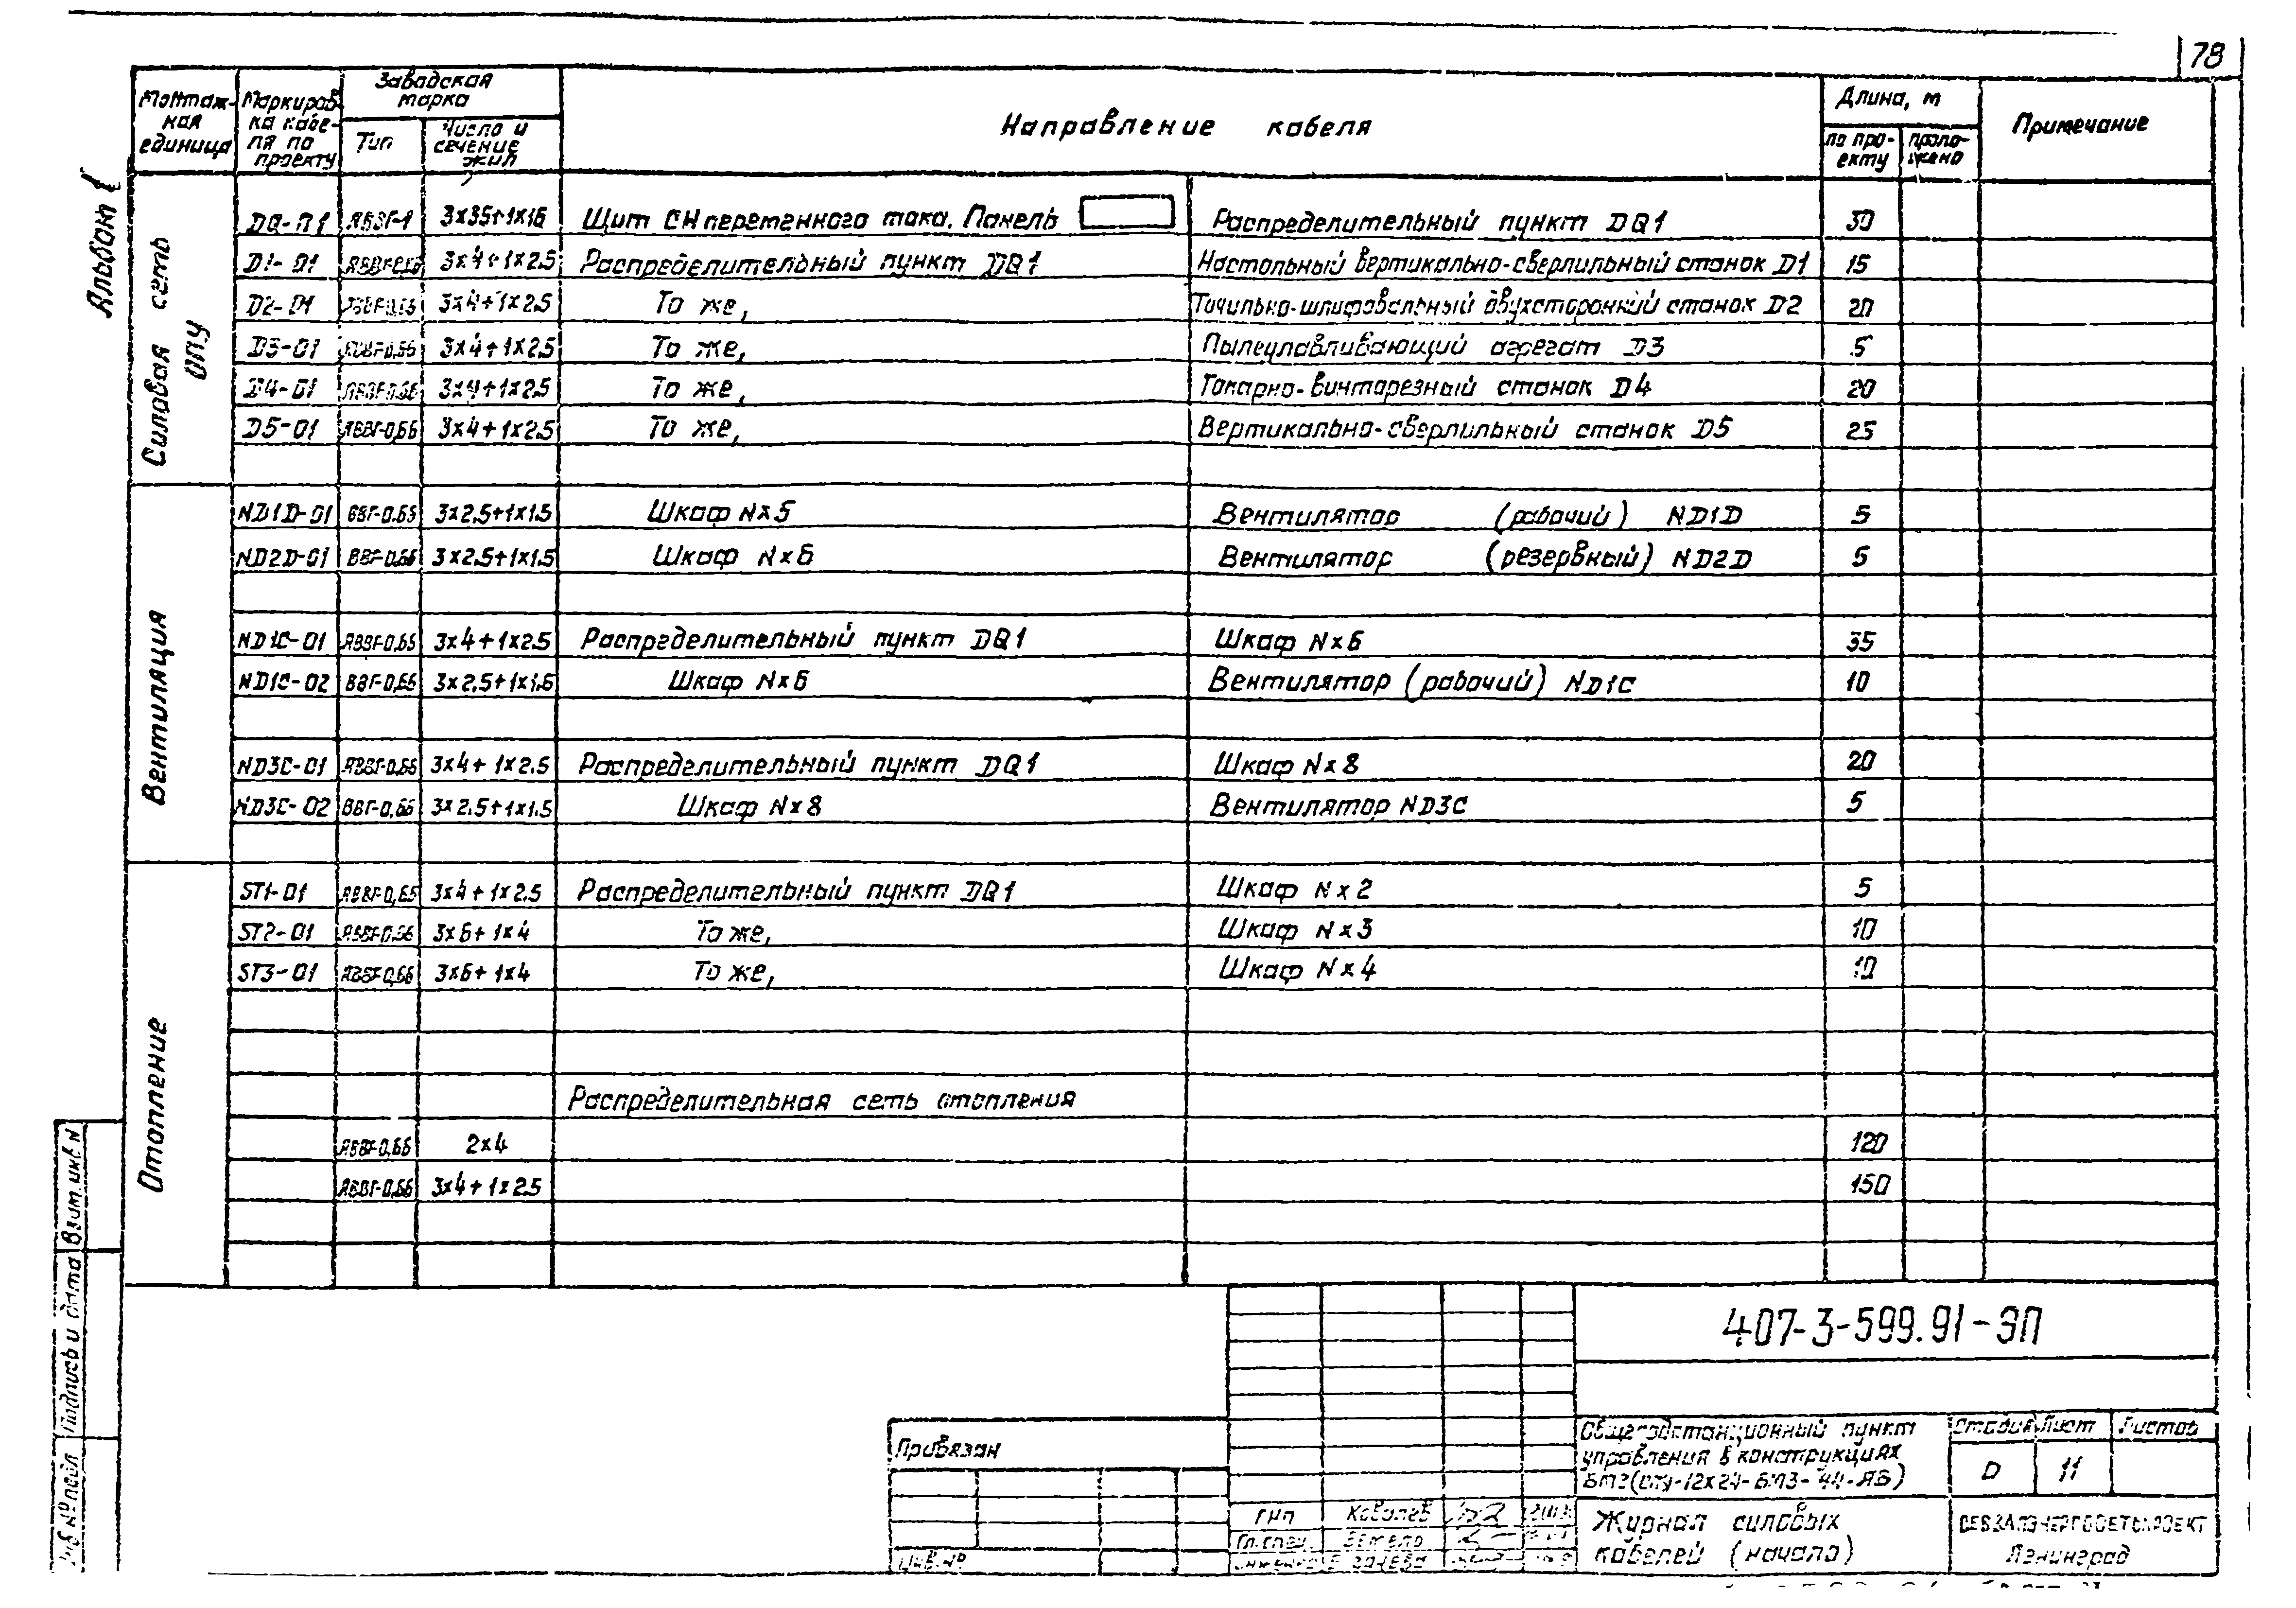 78
Альбом
Монтаж-
ная
единица
Маркиров
ка кабе-
ля по
проекту
Заводская
марка
Тип
Число и
сечение
жил
Направление кабеля
Длина, м
по про-
екту
проло-
жено
Примечание
Силовая сеть
ОПУ
DQ-П1 АВВГ-1 3х35+1х16 Щит СН переменного тока. Панель Распределительный пункт DQ1 30
D1-01 3х4+1х2.5 Распределительный пункт DQ1 Настольный вертикально-сверлильный станок D1 15
D2-01 АВВГ-0,66 3х4+1х2.5 То же, Точильно-шлифовальный двухсторонний станок D2 20
D3-01 АВВГ-0,66 3х4+1х2.5 То же, Пылеулавливающий агрегат D3 5
D4-01 АВВГ-0,66 3х4+1х2.5 То же, Токарно-винторезный станок D4 20
D5-01 АВВГ-0,66 3х4+1х2.5 То же, Вертикально-сверлильный станок D5 25
Вентиляция
ND1D-01 ВВГ-0.66 3х2.5+1х1.5 Шкаф Nх5 Вентилятор (рабочий) ND1D 5
ND2D-01 ВВГ-0.66 3х2.5+1х1.5 Шкаф Nх6 Вентилятор (резервный) ND2D 5
ND1C-01 АВВГ-0,66 3х4+1х2.5 Распределительный пункт DQ1 Шкаф Nх6 35
ND1C-02 ВВГ-0,66 3х2.5+1х1.5 Шкаф Nх6 Вентилятор (рабочий) ND1C 10
ND3C-01 АВВГ-0,66 3х4+1х2.5 Распределительный пункт DQ1 Шкаф Nх8 20
ND3C-02 ВВГ-0,66 3х2.5+1х1.5 Шкаф Nх8 Вентилятор ND3C 5
Отопление
ST1-01 АВВГ-0,66 3х4+1х2.5 Распределительный пункт DQ1 Шкаф Nх2 5
ST2-01 АВВГ-0,66 3х6+1х4 То же, Шкаф Nх3 10
ST3-01 АВВГ-0,66 3х6+1х4 То же, Шкаф Nх4 10
Распределительная сеть отопления
АВВГ-0,66 2х4 120
АВВГ-0,66 3х4+1х2.5 150
Взам. инв. N
Подпись и дата
Инв. № подл
407-3-599.91-ЭП
Привязан
Инв. №
ГИП Ковалев
Гл. спец.
Общеподстанционный пункт
управления в конструкциях
БМЗ (ОПУ-12х24-БМЗ-44-АБ)
Стадия Лист Листов
D 11
Журнал силовых
кабелей (начало)
СЕВЗАПЭНЕРГОСЕТЬПРОЕКТ
Ленинград